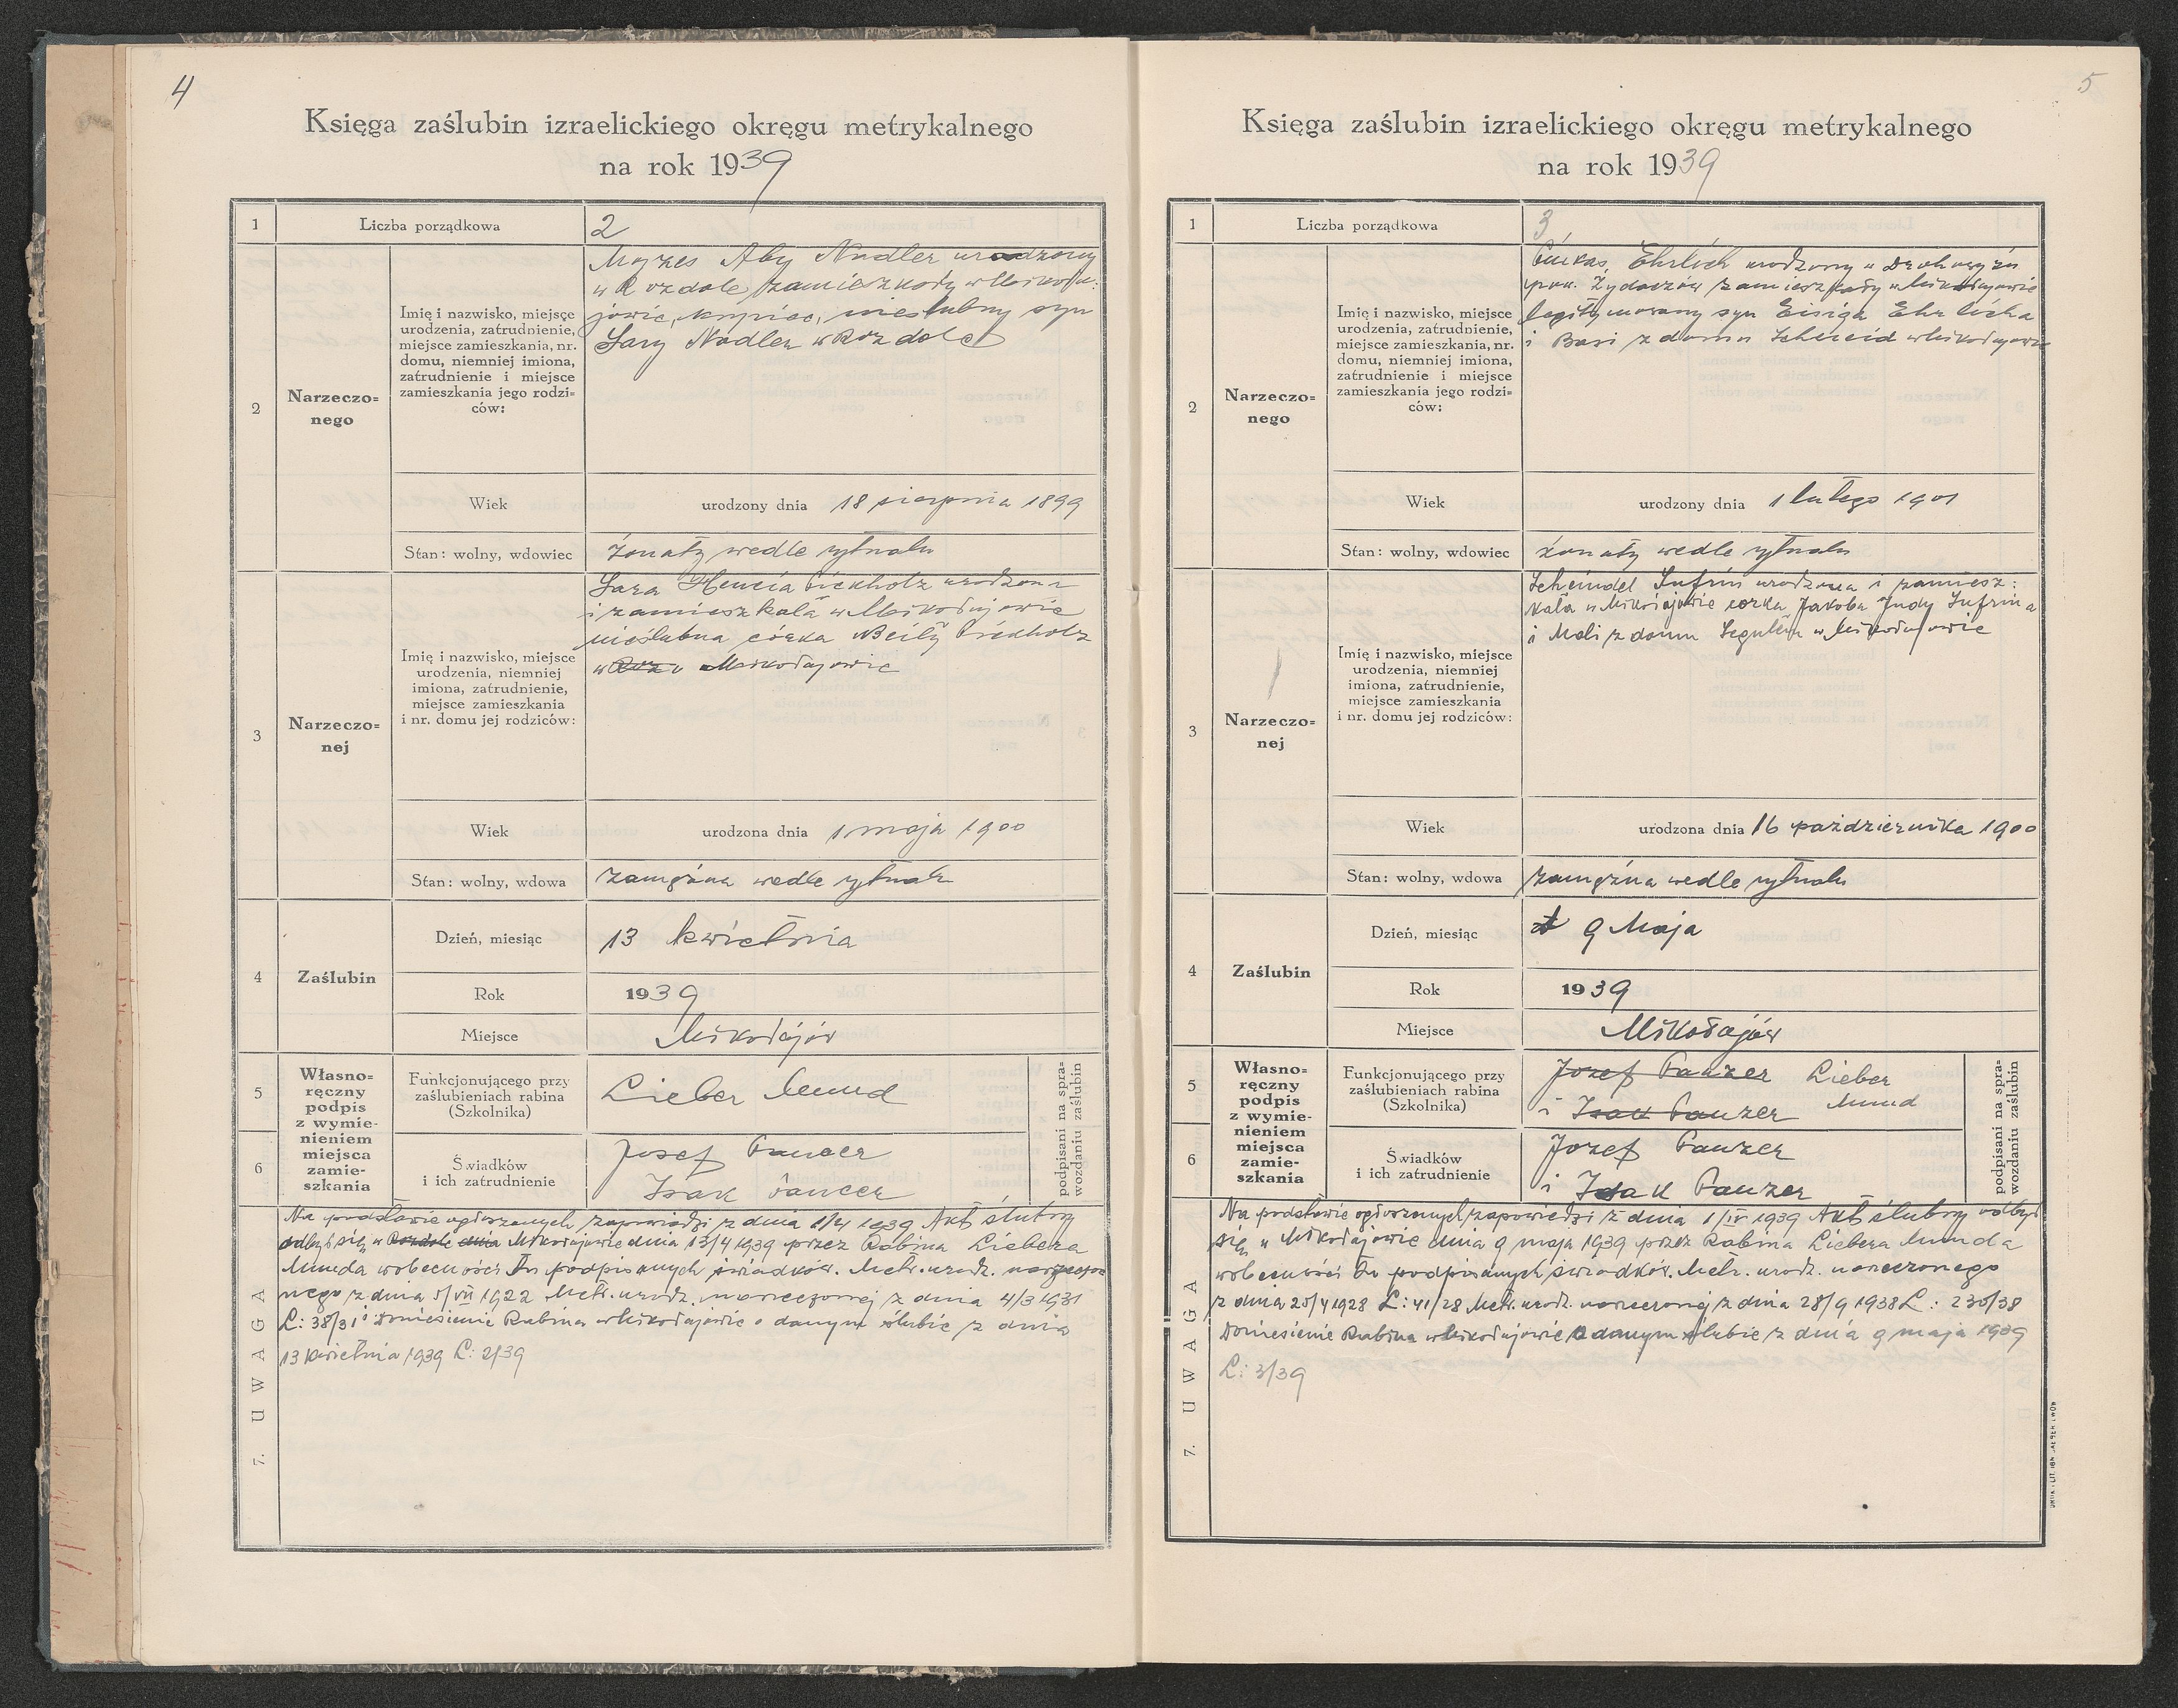 4
Księga zaślubin izraelickiego okręgu metrykalnego
na rok 1939
1
Liczba porządkowa
2
2
Narzeczo=
nego
Imię i nazwisko, miejsce
urodzenia, zatrudnienie,
miejsce zamieszkania, nr.
domu, niemniej imiona,
zatrudnienie i miejsce
zamieszkania jego rodzi=
ców:
Mojzes Aby Nadler urodzony
w Rozdole zamieszkały w Mikoła:
jowie, kupiec, nieślubny syn
Sary Nadler w Rozdole
Wiek
urodzony dnia 18 sierpnia 1899
Stan: wolny, wdowiec
żonaty wedle rytuału
3
Narzeczo=
nej
Imię i nazwisko, miejsce
urodzenia, niemniej
imiona, zatrudnienie,
miejsce zamieszkania
i nr. domu jej rodziców:
Sara Hencia Pickholz urodzona
i zamieszkała w Mikołajowie
nieślubna córka Beily Pickholz
w Mikołajowie
Wiek
urodzona dnia 1 maja 1900
Stan: wolny, wdowa
zamężna wedle rytuału
4
Zaślubin
Dzień, miesiąc
13 kwietnia
Rok
1939
Miejsce
Mikołajów
5
6
Własno=
ręczny
podpis
z wymie=
nieniem
miejsca
zamie=
szkania
Funkcjonującego przy
zaślubieniach rabina
(Szkolnika)
Lieber Mund
Świadków
i ich zatrudnienie
Josef Pancer
Isak Pancer
podpisani na spra=
wozdaniu zaślubin
7. UWAGA
Na podstawie ogłoszonych zapowiedzi z dnia 1/4 1939 Akt ślubny
odbył się w Rozdole dnia Mikołajowie dnia 13/4 1939 przez Rabina Liebera
Munda w obecności tu podpisanych świadków. Metr. urodz. narzeczo
nego z dnia 5/VII 1922 Metr. urodz. narzeczonej z dnia 4/3 1931
L: 38/31 i Doniesienie Rabina w Mikołajowie o danym ślubie z dnia
13 kwietnia 1939 L: 2/39
5
Księga zaślubin izraelickiego okręgu metrykalnego
na rok 1939
1
Liczba porządkowa
3
2
Narzeczo=
nego
Imię i nazwisko, miejsce
urodzenia, zatrudnienie,
miejsce zamieszkania, nr.
domu, niemniej imiona,
zatrudnienie i miejsce
zamieszkania jego rodzi=
ców:
Pinkas Ehrlich urodzony w Drohowyżu
pow. Żydaczów zamieszkały w Mikołajowie
legitymowany syn Eisiga Ehrlicha
i Basi z domu Schneid w Mikołajowie
Wiek
urodzony dnia 1 lutego 1901
Stan: wolny, wdowiec
żonaty wedle rytuału
3
Narzeczo=
nej
Imię i nazwisko, miejsce
urodzenia, niemniej
imiona, zatrudnienie,
miejsce zamieszkania
i nr. domu jej rodziców:
Scheindel Sufrin urodzona i zamiesz:
kała w Mikołajowie corka Jakoba Judy Sufrina
i Mali z domu w Mikołajowie
Wiek
urodzona dnia 16 października 1900
Stan: wolny, wdowa
zamężna wedle rytuału
4
Zaślubin
Dzień, miesiąc
9 Maja
Rok
1939
Miejsce
Mikołajów
5
6
Własno=
ręczny
podpis
z wymie=
nieniem
miejsca
zamie=
szkania
Funkcjonującego przy
zaślubieniach rabina
(Szkolnika)
Jozef Panzer Lieber
i Isak Panzer Mund
Świadków
i ich zatrudnienie
Jozef Panzer
i Isak Panzer
podpisani na spra=
wozdaniu zaślubin
7. UWAGA
Na podstawie ogłoszonych zapowiedzi z dnia 1/IV 1939 Akt ślubny odbył
się w Mikołajowie dnia 9 maja 1939 przez Rabina Liebera Munda
w obecności tu podpisanych świadków. Metr. urodz. narzeczonego
z dnia 25/4 1928 L: 41/28 Metr. urodz. narzeczonej z dnia 28/9 1938 L: 230/38
Doniesienie Rabina w Mikołajowie o danym ślubie z dnia 9 maja 1939
L: 3/39